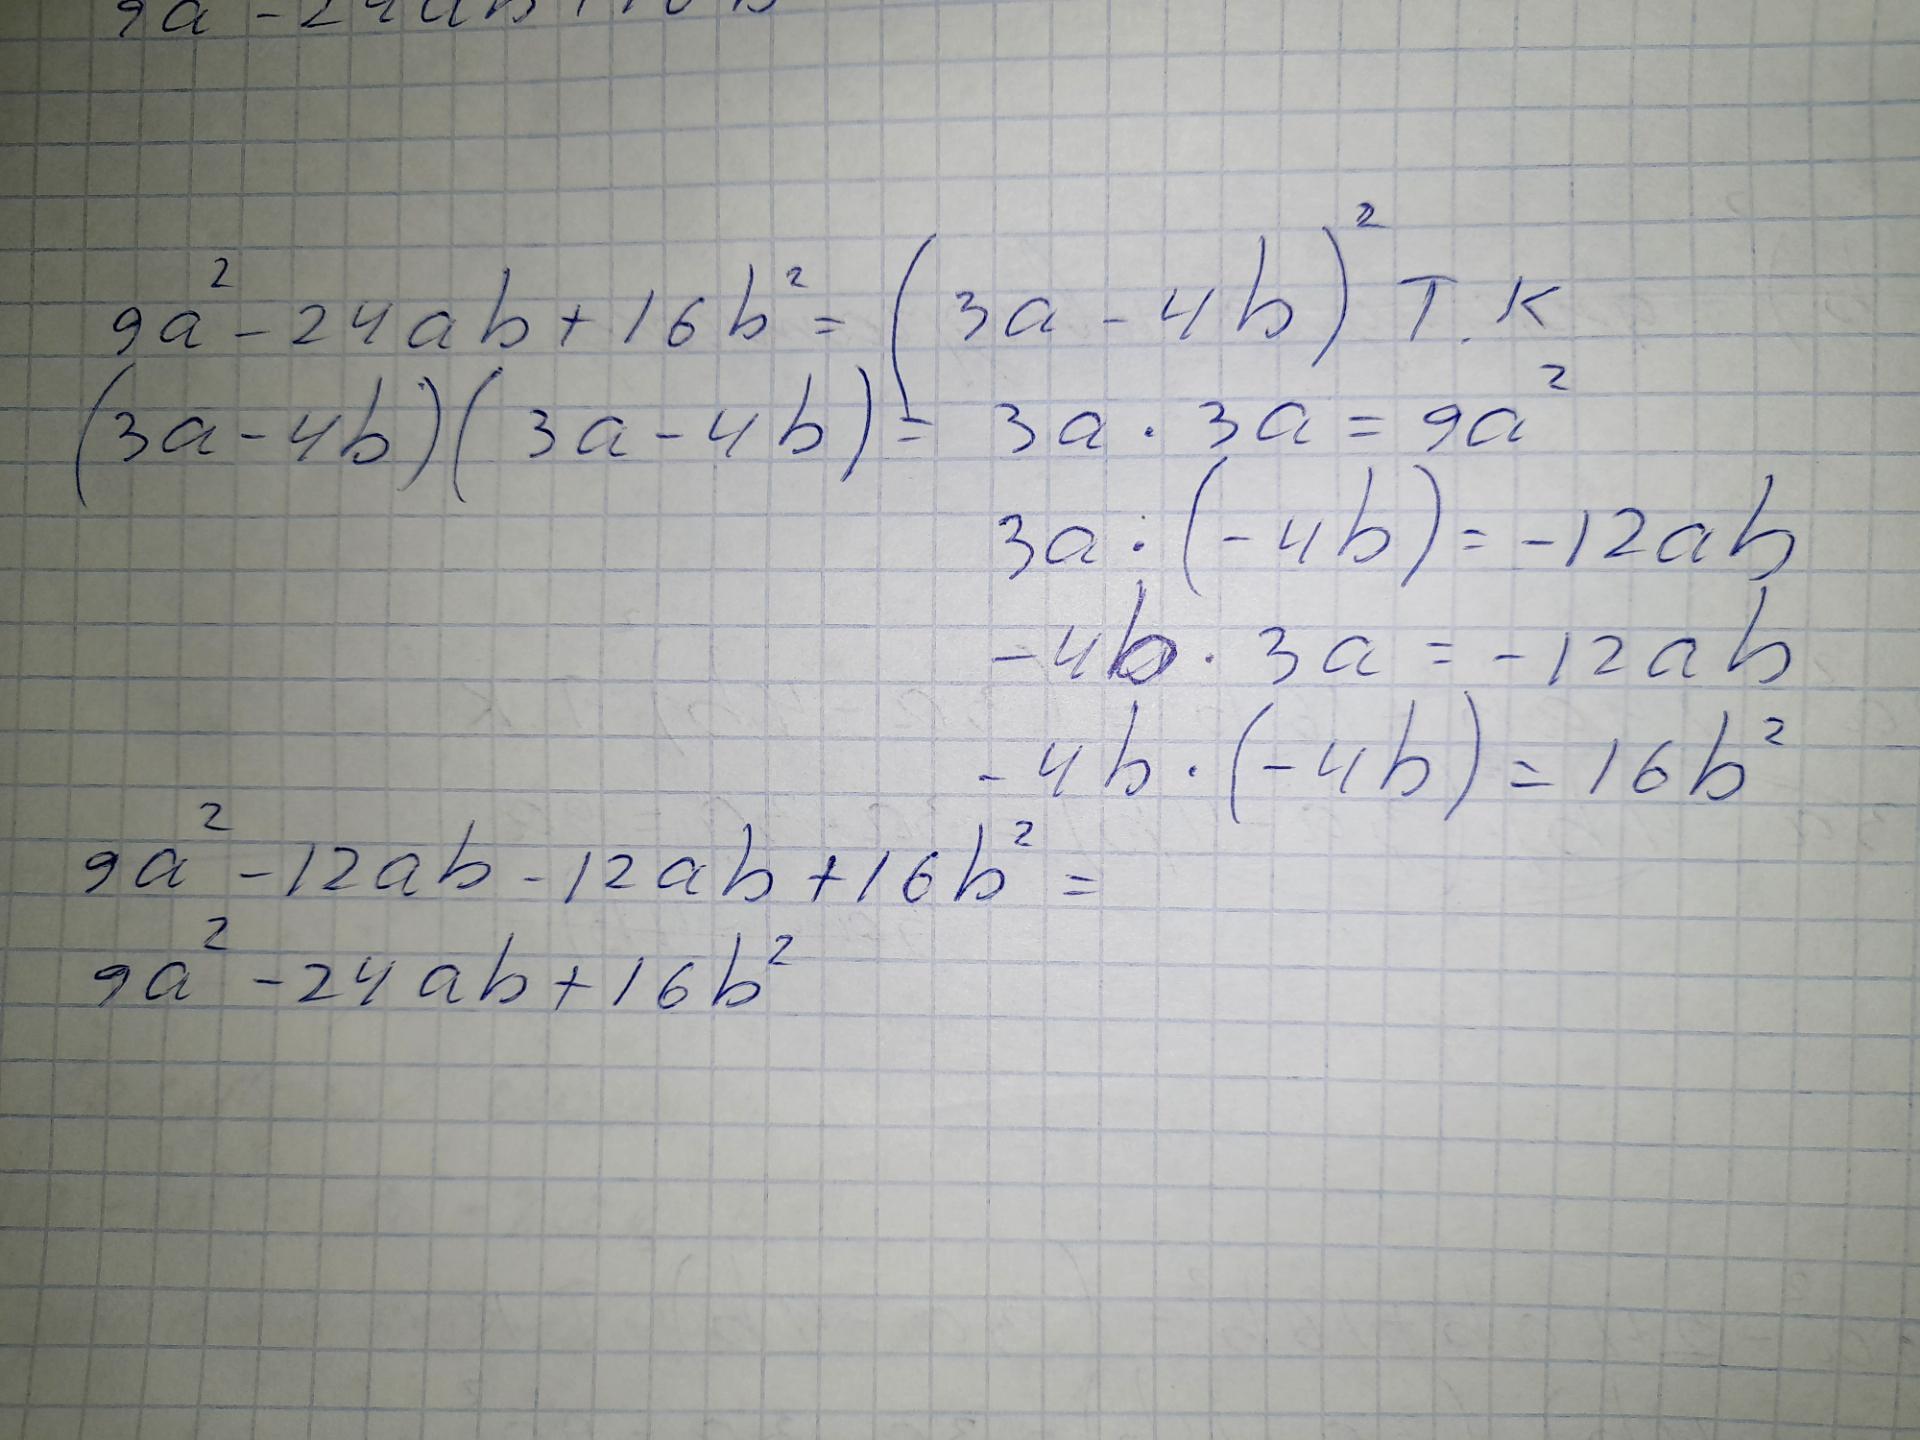 9a - 24ab + 16b
9a² - 24ab + 16b² = (3a - 4b)² т.к
(3a - 4b)(3a - 4b) = 3a · 3a = 9a²
3a · (-4b) = -12ab
-4b · 3a = -12ab
-4b · (-4b) = 16b²
9a² - 12ab - 12ab + 16b² =
9a² - 24ab + 16b²